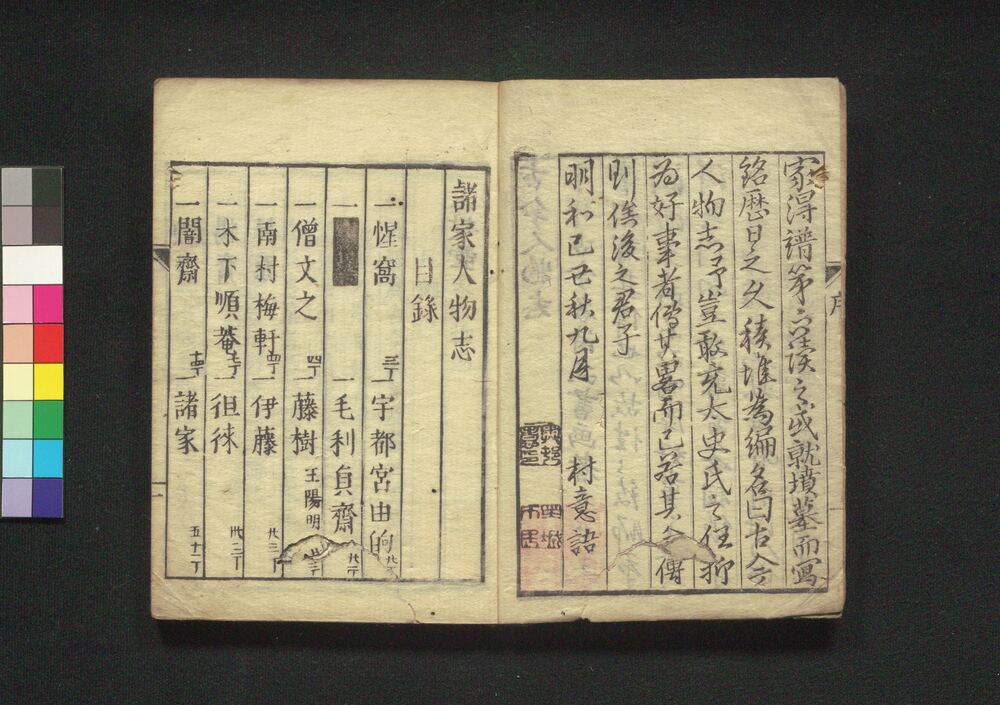 家得譜第而読之或就墳墓而寫
銘歴日之久積堆為編名曰古今
人物志予豈敢充太史氏之任抑
為好事者僃其畧而已若其今傳
則俟後之君子
明和己丑秋九月 村意語
序
諸家人物志
目錄
一惺窩 三丁 一宇都宮由的
一 一毛利貞齋 廿一丁
一僧文之 四丁 一藤樹 王陽明
一南村梅軒 四丁 一伊藤 廿三丁
一木下順菴 七丁 一徂徠 卅二丁
一闇齋 十四丁 一諸家 五十一丁